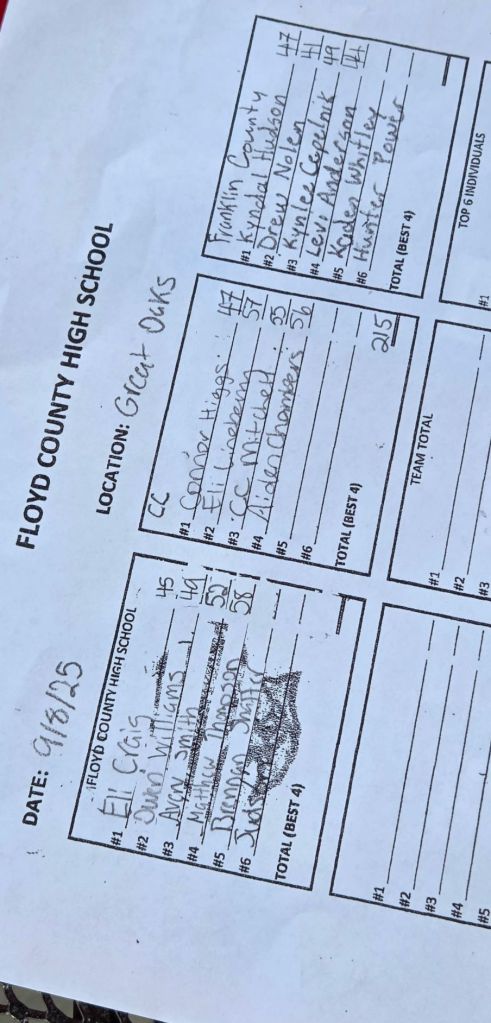 FLOYD COUNTY HIGH SCHOOL
DATE: 9/8/25
LOCATION: Great Oaks
FLOYD COUNTY HIGH SCHOOL
#1 Eli Craig 45
#2 Owen Williams 49
#3 Avan Smith 52
#4 Matthew Thompson 58
#5 Brennan Shaffer
#6
TOTAL (BEST 4)
CC
#1 Connor Higgs 47
#2 Eli Lineberry 57
#3 CC Mitchell 55
#4 Aiden Chambers 56
#5
#6
TOTAL (BEST 4) 215
Franklin County
#1 Kyndal Hudson 47
#2 Drew Nolen 41
#3 Kynlee Cepelnik 49
#4 Levi Anderson 44
#5 Kaden Whitley
#6 Hunter Power
TOTAL (BEST 4)
#1
#2
#3
#4
#5
TEAM TOTAL
#1
#2
#3
TOP 6 INDIVIDUALS
#1